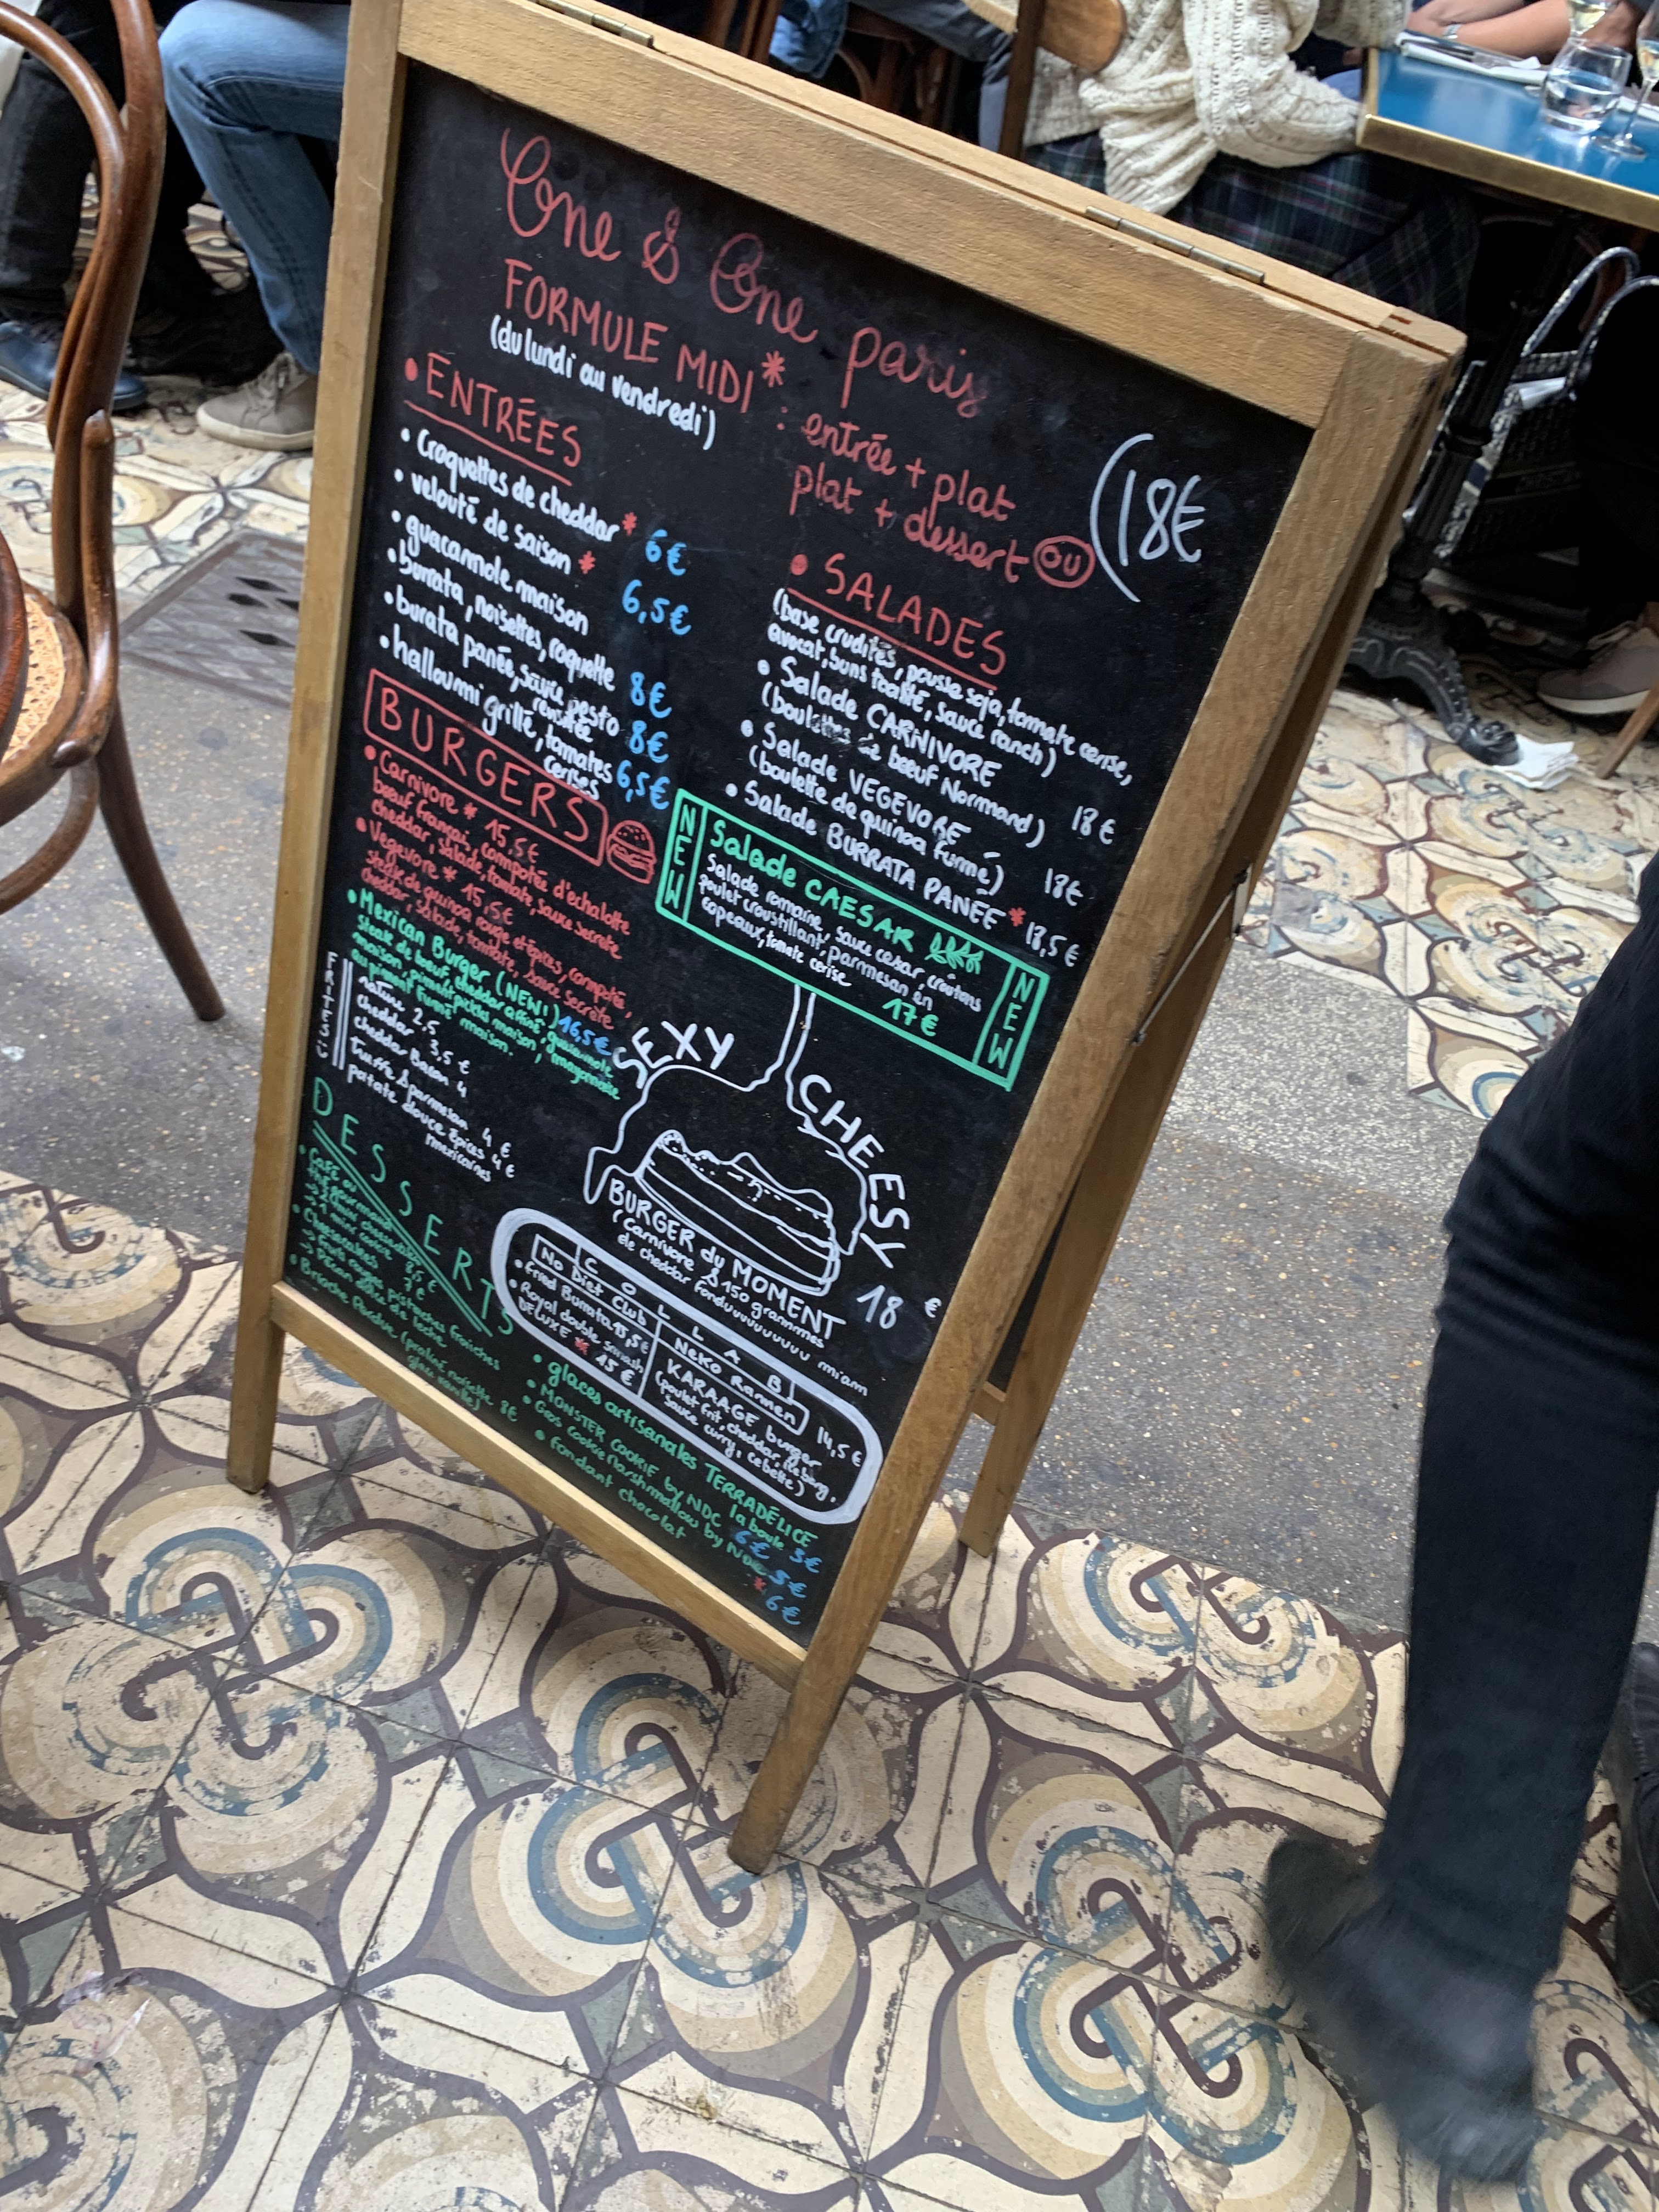 One & One paris
FORMULE MIDI* : entrée + plat
(du lundi au vendredi)
plat + dessert OU
18€
• ENTRÉES
• Croquettes de cheddar* 6€
• velouté de saison* 6,5€
• guacamole maison
• burrata, noisettes, roquette 8€
• burata panée, sauce pesto 8€
• halloumi grillé, tomates
cerises 6,5€
BURGERS
• Carnivore * 15,5€
bœuf français, compotée d'échalotte
cheddar, salade, tomate, sauce secrète
• Vegevore * 15,5€
steak de quinoa rouge et épices, compotée,
cheddar, salade, tomate, sauce secrète
• Mexican Burger (NEW!) 16,5€
steak de bœuf, cheddar affiné, guacamole
maison, pickles maison, mayonnaise
au piment fumé maison.
FRITES
nature 2,5
cheddar 3,5 €
cheddar Bacon 4
truffe & parmesan 4 €
patate douce épices 4 €
mexicaines
DESSERTS
• café ou
thé gourmand
• Cheesecakes 7€
→ fruits rouges, pistaches fraîches
• Brioche Perdue (praliné noisette 8€
glace vanille)
• SALADES
(base crudités, pousse soja, tomate cerise,
avocat, buns toasté, sauce ranch)
• Salade CARNIVORE
(boulettes de bœuf Normand) 18€
• Salade VEGEVORE
(boulette de quinoa fumé) 18€
• Salade BURRATA PANÉE* 18,5€
NEW
Salade CAESAR
Salade romaine, sauce cesar, croutons
poulet croustillant, parmesan en
copeaux, tomate cerise 17€
NEW
SEXY
CHEESY
BURGER du MOMENT 18 €
(Carnivore & 150 grammmes
de cheddar fonduuuuuuuuu miam
COLLAB
No Diet Club
• Fried Burrata 15,5€
• Royal double smash
DELUXE * 15 €
Neko Ramen
KARAAGE burger 14,5 €
(poulet frit, cheddar, iceberg,
sauce curry, cebette)
• glaces artisanales TERRADÉLICE
la boule 3€
• MONSTER COOKIE by NDC 6€
• Gros cookie Marshmallow by NDC 5€
• fondant chocolat * 6€